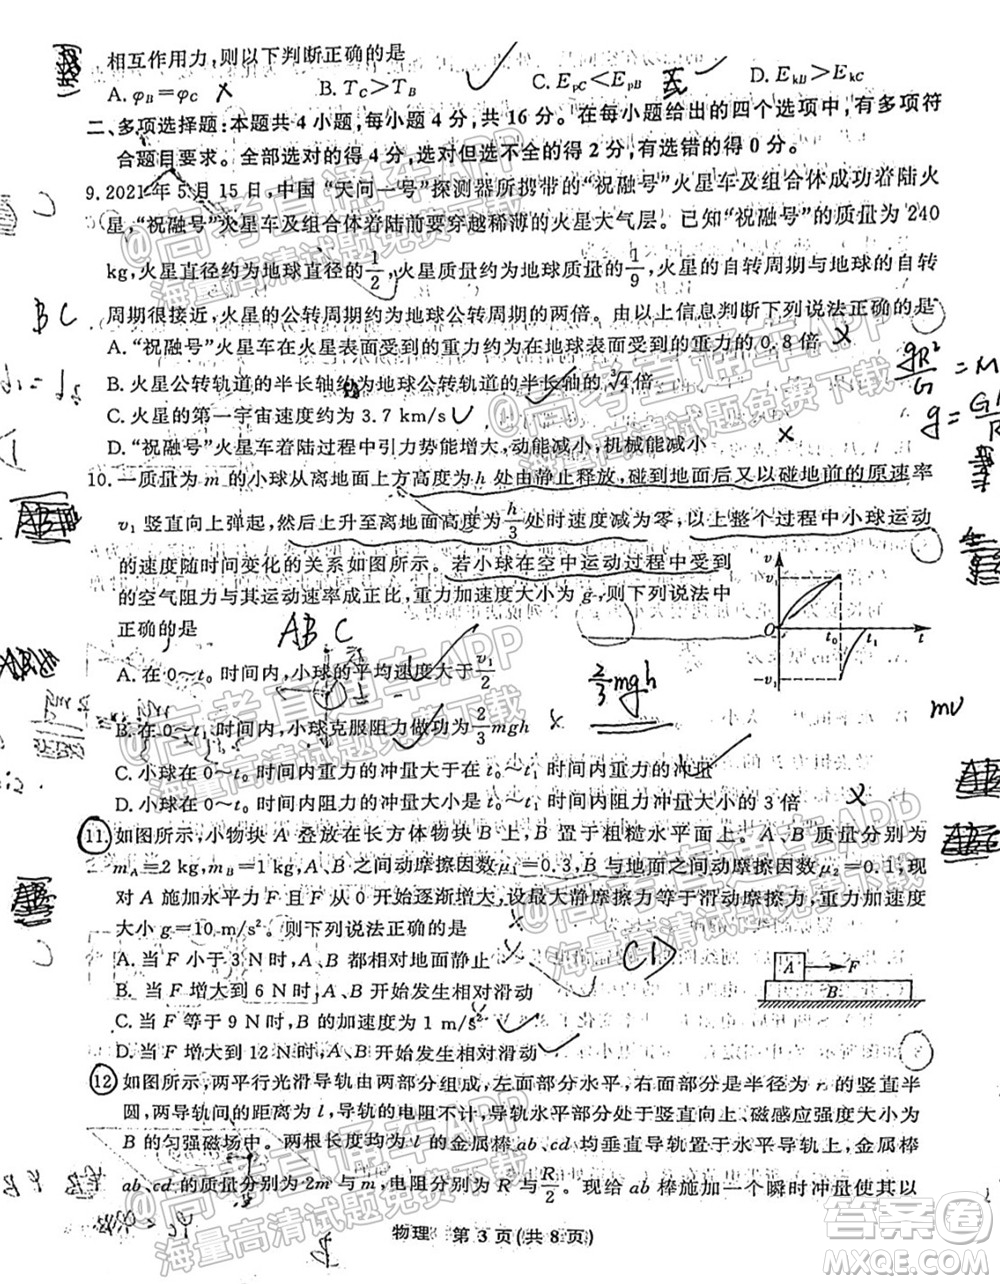 相互作用力,则以下判断正确的是
A. φB=φC B. TC>TB C. EpC<EpB D. EkB>EkC
二、多项选择题:本题共 4 小题,每小题 4 分,共 16 分。在每小题给出的四个选项中,有多项符
合题目要求。全部选对的得 4 分,选对但选不全的得 2 分,有选错的得 0 分。
9. 2021 年 5 月 15 日,中国“天问一号”探测器所携带的“祝融号”火星车及组合体成功着陆火
星,“祝融号”火星车及组合体着陆前要穿越稀薄的火星大气层。已知“祝融号”的质量为 240
kg,火星直径约为地球直径的1/2,火星的质量约为地球质量的1/9,火星的自转周期与地球的自转
周期很接近,火星的公转周期约为地球公转周期的两倍。由以上信息判断下列说法正确的是
B C
A. “祝融号”火星车在火星表面受到的重力约为在地球表面受到的重力的 0.8 倍
B. 火星公转轨道的半长轴约为地球公转轨道的半长轴的∛4倍
C. 火星的第一宇宙速度约为 3.7 km/s
D. “祝融号”火星车着陆过程中引力势能增大,动能减小,机械能减小
10. 一质量为 m 的小球从离地面上方高度为 h 处由静止释放,碰到地面后又以碰地前的原速率
v1 竖直向上弹起,然后上升至离地面高度为h/3处时速度减为零,以上整个过程中小球运动
的速度随时间变化的关系如图所示。若小球在空中运动过程中受到
的空气阻力与其运动速率成正比,重力加速度大小为 g,则下列说法中
正确的是
ABC
v
v1
O
t0
t1
t
-v1
A. 在 0~t0 时间内,小球的平均速度大于v1/2
2/3 mgh
B. 在 0~t1 时间内,小球克服阻力做功为2/3mgh
mv
C. 小球在 0~t0 时间内重力的冲量大于在 t0~t1 时间内重力的冲量
D. 小球在 0~t0 时间内阻力的冲量大小是 t0~t1 时间内阻力的冲量大小的 3 倍
11. 如图所示,小物块 A 叠放在长方体物块 B 上,B 置于粗糙水平面上。A、B 质量分别为
mA=2 kg,mB=1 kg,A、B 之间动摩擦因数μ1=0.3,B 与地面之间动摩擦因数μ2=0.1,现
对 A 施加水平力 F 且 F 从 0 开始逐渐增大,若最大静摩擦力等于滑动摩擦力,重力加速度
大小 g=10 m/s²。则下列说法正确的是
CD
A. 当 F 小于 3 N 时,A、B 都相对地面静止
A
F
B
B. 当 F 增大到 6 N 时,A、B 开始发生相对滑动
C. 当 F 等于 9 N 时,B 的加速度为 1 m/s²
D. 当 F 增大到 12 N 时,A、B 开始发生相对滑动
12. 如图所示,两平行光滑导轨由两部分组成,左面部分水平,右面部分为半径为 r 的竖直半
圆,两导轨间的距离为 l,导轨的电阻不计,导轨水平部分处于竖直向上、磁感应强度大小为
B 的匀强磁场中。两根长度均为 l 的金属棒 ab、cd 均垂直导轨置于水平导轨上,金属棒
ab、cd 的质量分别为 2m 与 m,电阻分别为 R 与R/2。现给 ab 棒施加一个瞬时冲量使其以
物理 第 3 页(共 8 页)
答案卷